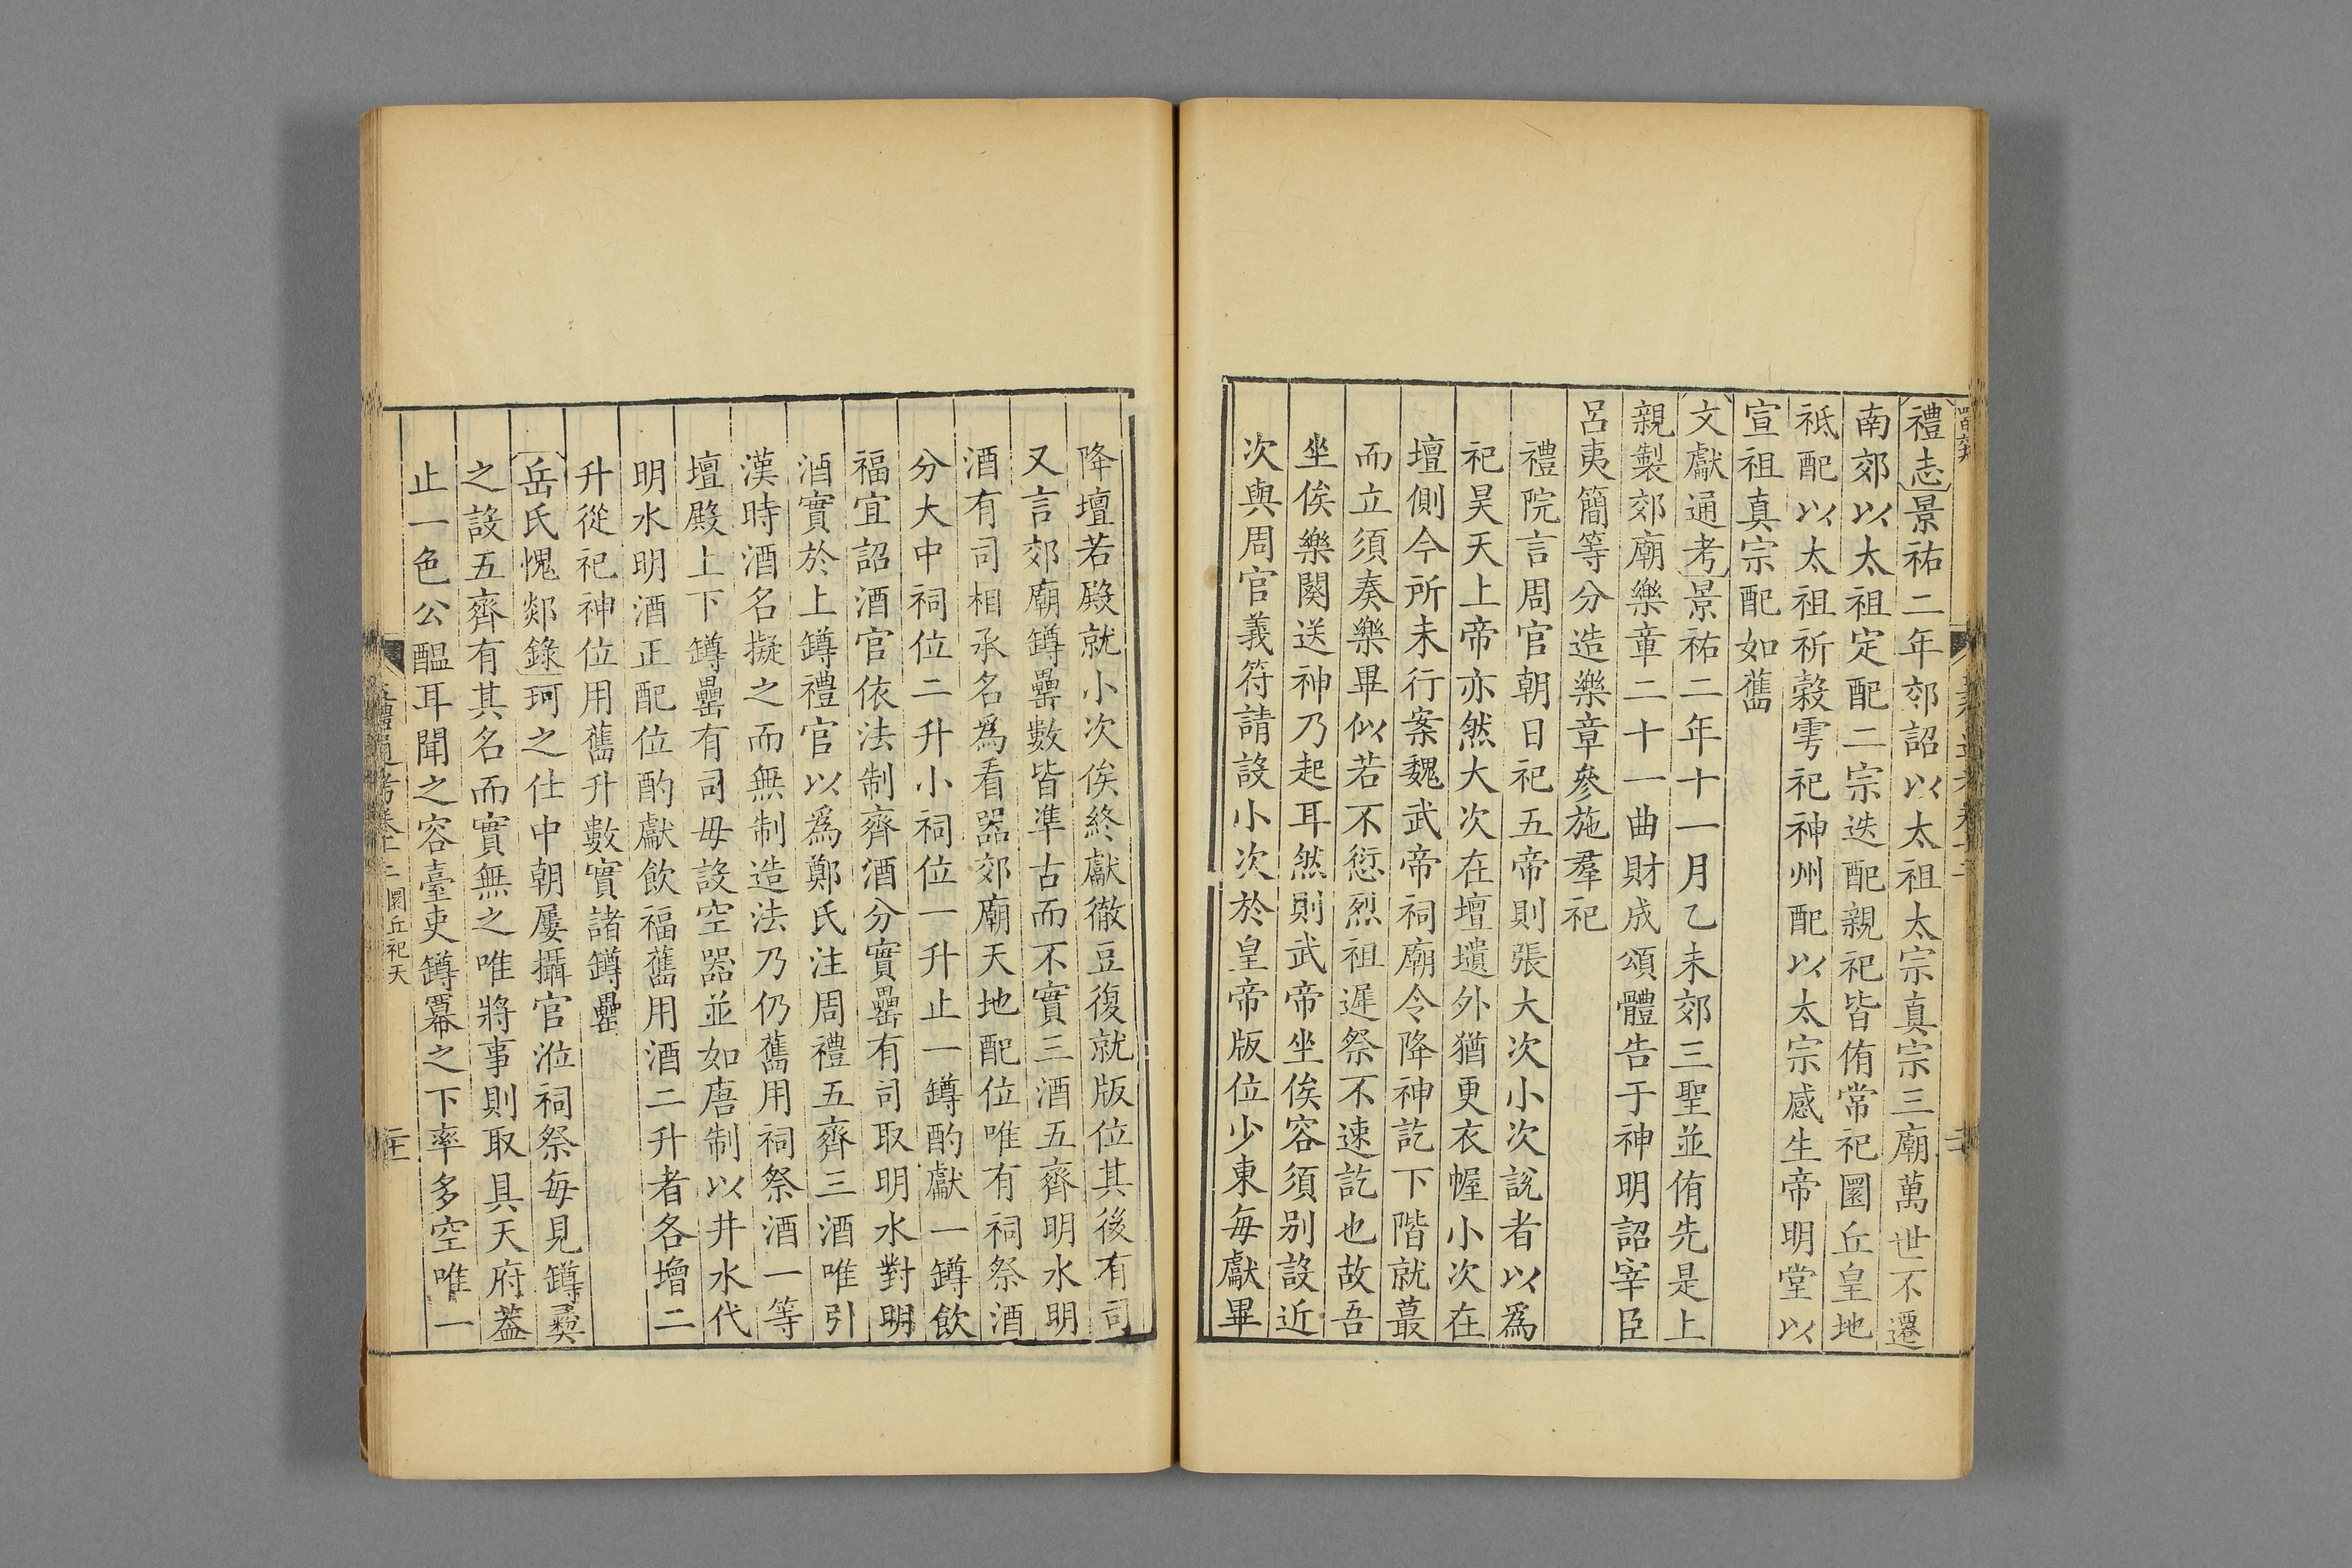 禮志景祐二年郊詔以太祖太宗真宗三廟萬世不遷
南郊以太祖定配二宗迭配親祀皆侑常祀圜丘皇地
祗配以太祖祈穀雩祀神州配以太宗感生帝明堂以
宣祖真宗配如舊
文獻通考景祐二年十一月乙未郊三聖並侑先是上
親製郊廟樂章二十一曲財成頌體告于神明詔宰臣
呂夷簡等分造樂章參施羣祀
禮院言周官朝日祀五帝則張大次小次說者以爲
祀昊天上帝亦然大次在壇壝外猶更衣幄小次在
壇側今所未行案魏武帝祠廟令降神訖下階就蕞
而立須奏樂畢似若不愆烈祖遲祭不速訖也故吾
坐俟樂闋送神乃起耳然則武帝坐俟容須別設近
次與周官義符請設小次於皇帝版位少東每獻畢
降壇若殿就小次俟終獻徹豆復就版位其後有司
又言郊廟罇罍數皆準古而不實三酒五齊明水明
酒有司相承名爲看器郊廟天地配位唯有祠祭酒
分大中祠位二升小祠位一升止一罇酌獻一罇飲
福宜詔酒官依法制齊酒分實罍有司取明水對明
酒實於上罇禮官以爲鄭氏注周禮五齊三酒唯引
漢時酒名擬之而無制造法乃仍舊用祠祭酒一等
壇殿上下罇罍有司毋設空器並如唐制以井水代
明水明酒正配位酌獻飲福舊用酒二升者各增二
升從祀神位用舊升數實諸罇罍
岳氏愧郯錄珂之仕中朝屢攝官涖祠祭每見罇彝
之設五齊有其名而實無之唯將事則取具天府蓋
止一色公醞耳聞之容臺吏罇冪之下率多空唯一
五禮通考卷十二 圜丘祀天